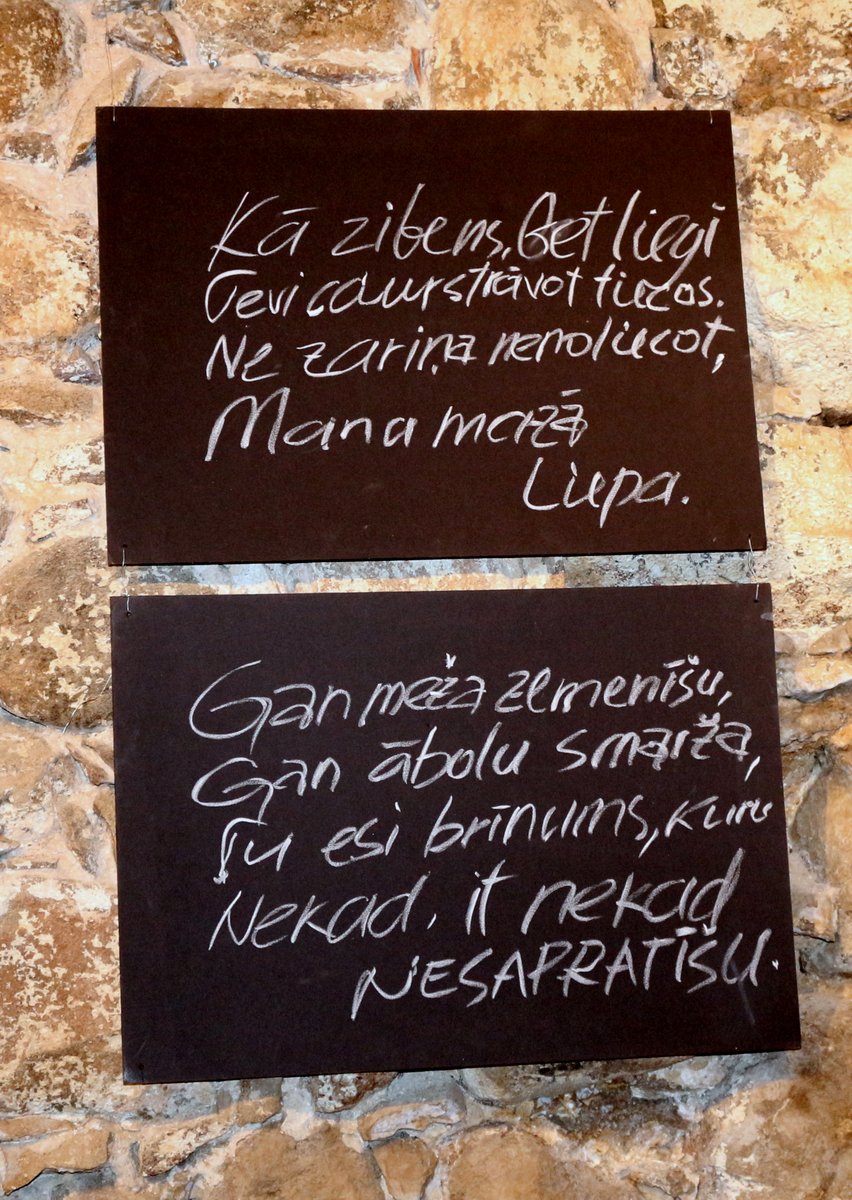 Kā zibens, bet liegi
Tevi caurstrāvot tiecos.
Ne zariņa nenoliecot,
Mana mazā
Liepa.
Gan meža zemenīšu,
Gan ābolu smarža,
Tu esi brīnums, kuru
Nekad, it nekad
NESAPRATĪŠU.